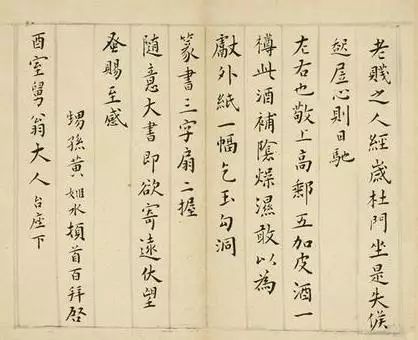 老賤之人經歲杜門坐是失候
起居心則日馳
左右也敬上高郵五加皮酒一
樽此酒補陰燥濕敢以為
獻外紙一幅乞玉勾洞
篆書三字扇二握
隨意大書即欲寄遠伏望
蚤賜至感
甥孫黃姬水頓首百拜啓
酉室舅翁大人台座下